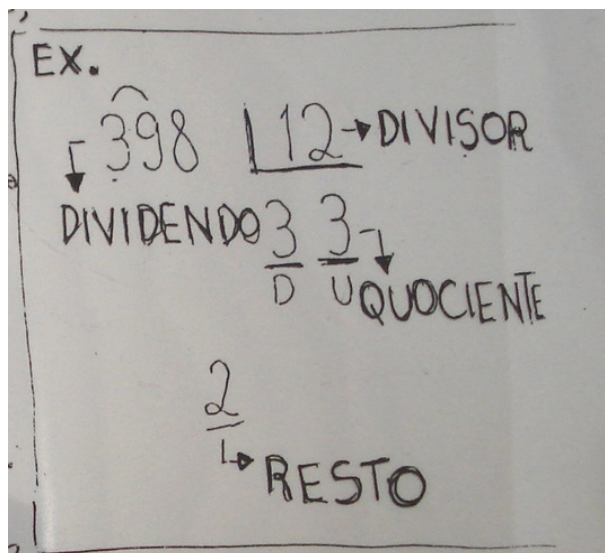 EX.
398 12 → DIVISOR
DIVIDENDO 3 3
D U QUOCIENTE
2
RESTO